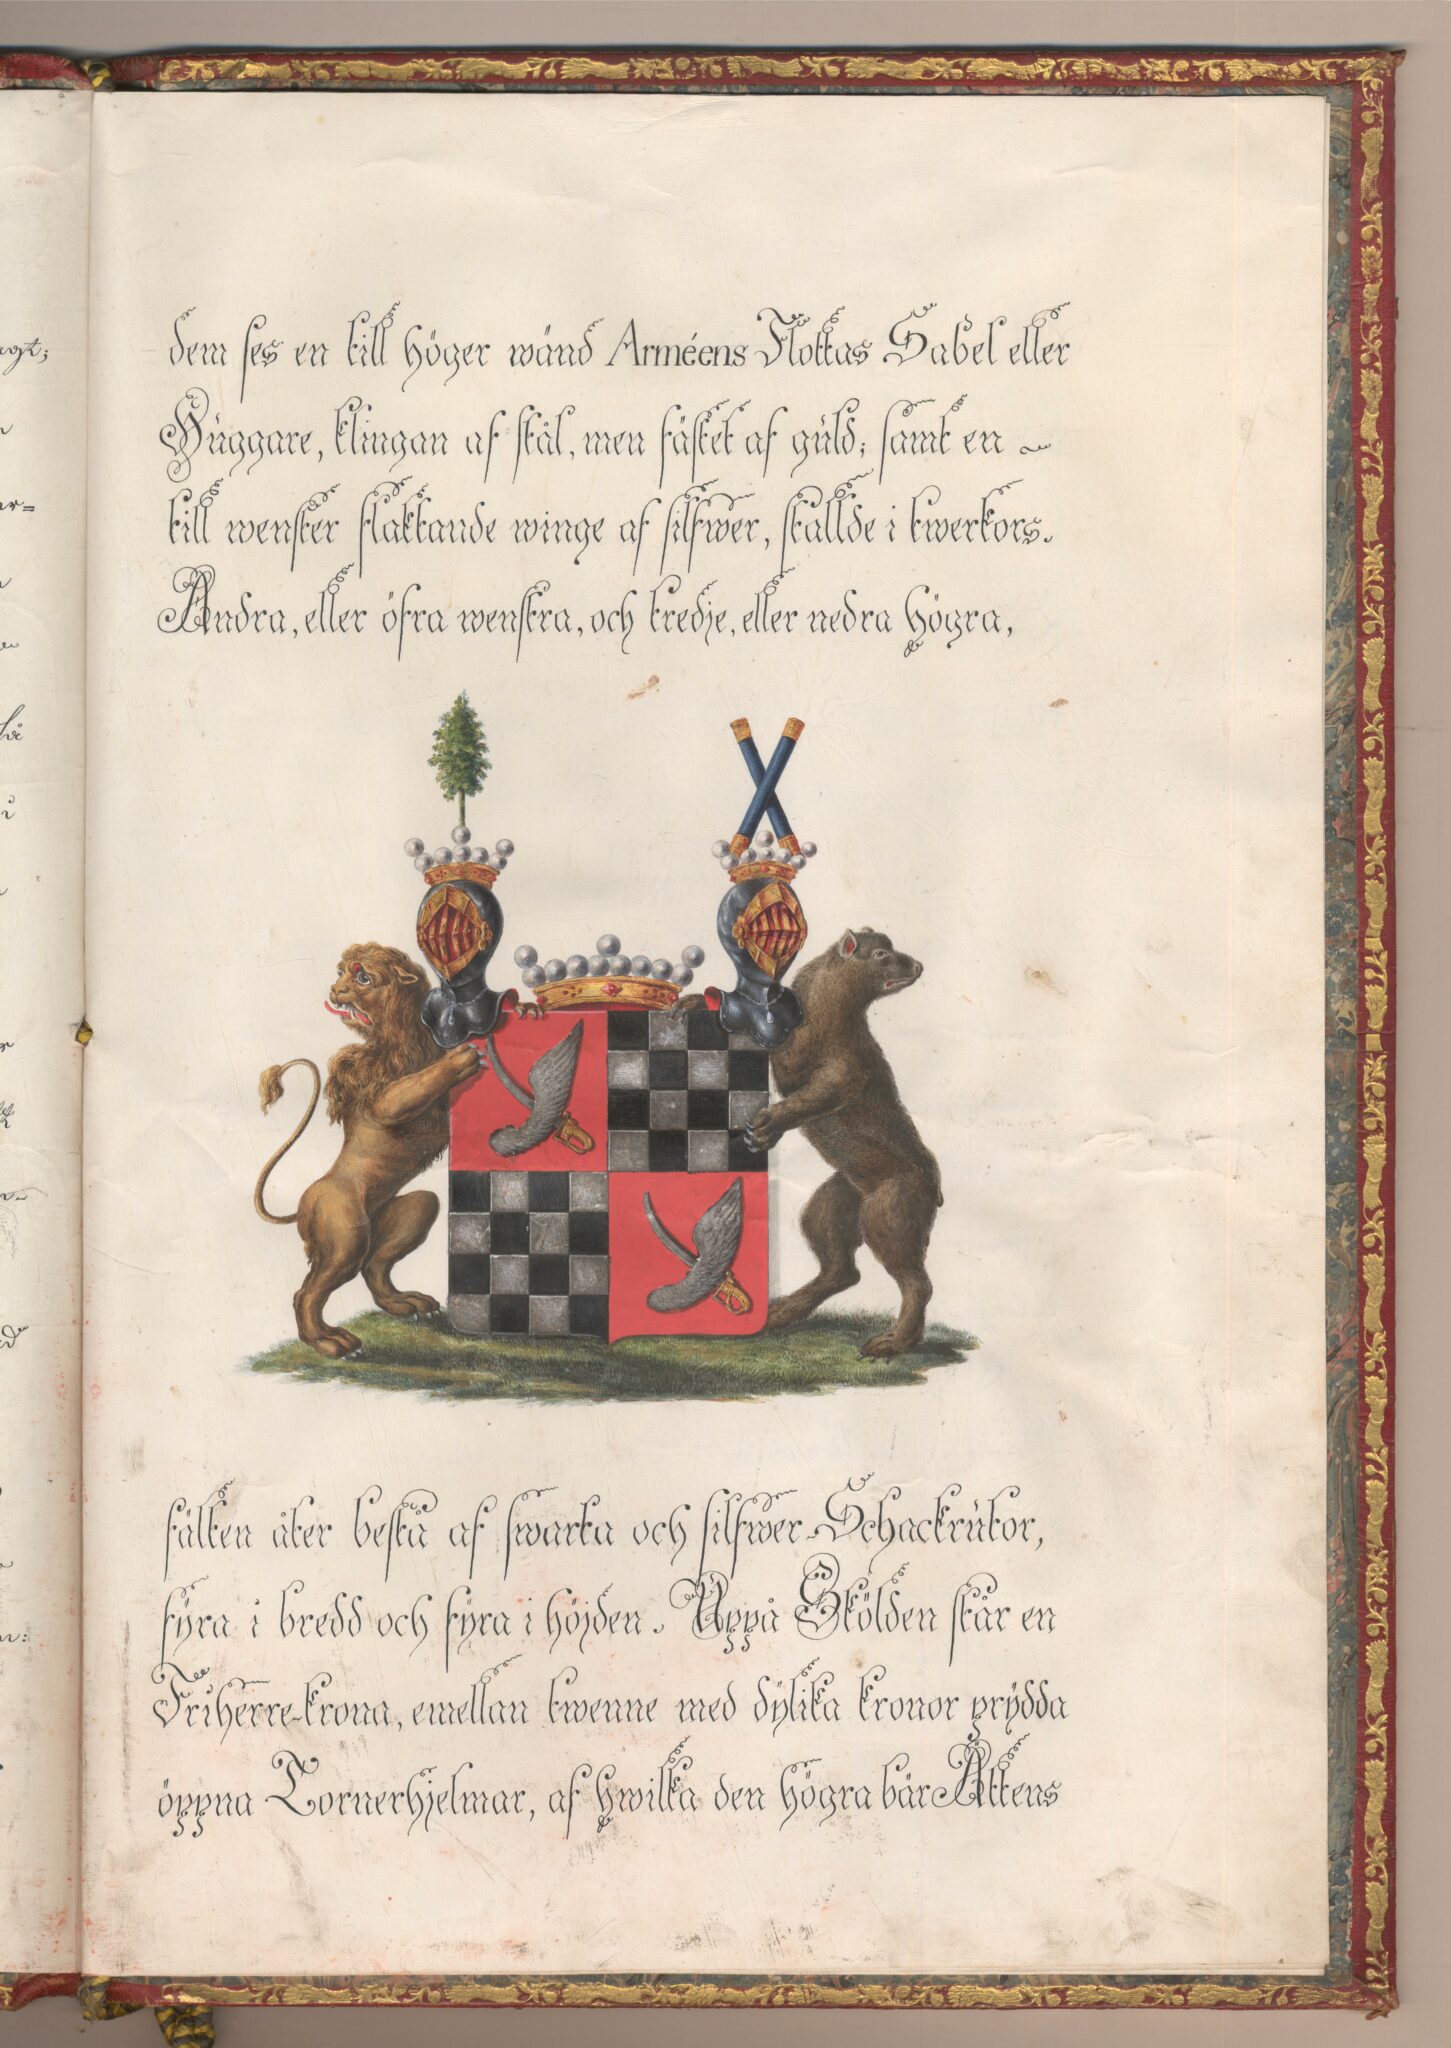 dem ses en till höger wänd Arméens Flottas Sabel eller
Huggare, klingan af stål, men fästet af guld; samt en
till wenster flaktande winge af silfwer, ställde i twerkors.
Andra, eller öfra wenstra, och tredje, eller nedra högra,
fälten åter bestå af swarta och silfwer-Schackrutor,
fyra i bredd och fyra i höjden. Uppå Skölden står en
Friherre-krona, emellan twenne med dylika kronor prydda
öppna Tornerhjelmar, af hwilka den högra bär Ättens